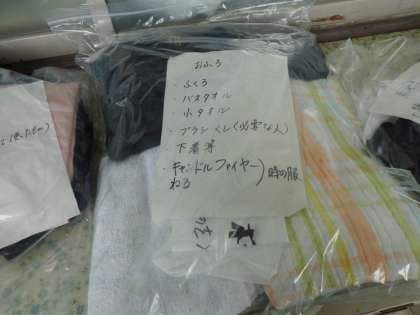 おふろ
・ふくろ
・バスタオル
・小タオル
・ブラシ くし(必要な人)
下着等
・キャンドルファイヤー)時の服
ねる